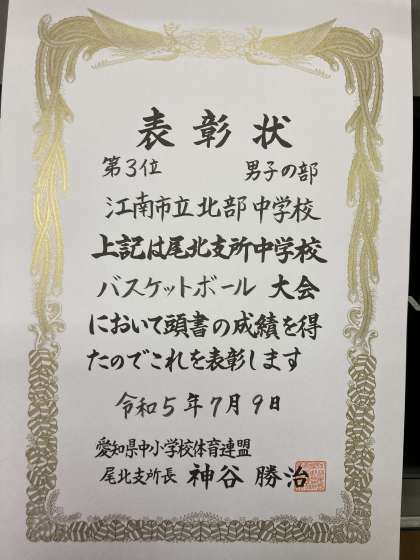 表彰状
第3位 男子の部
江南市立北部中学校
上記は尾北支所中学校
バスケットボール 大会
において頭書の成績を得
たのでこれを表彰します
令和5年7月9日
愛知県中小学校体育連盟
尾北支所長 神谷 勝治